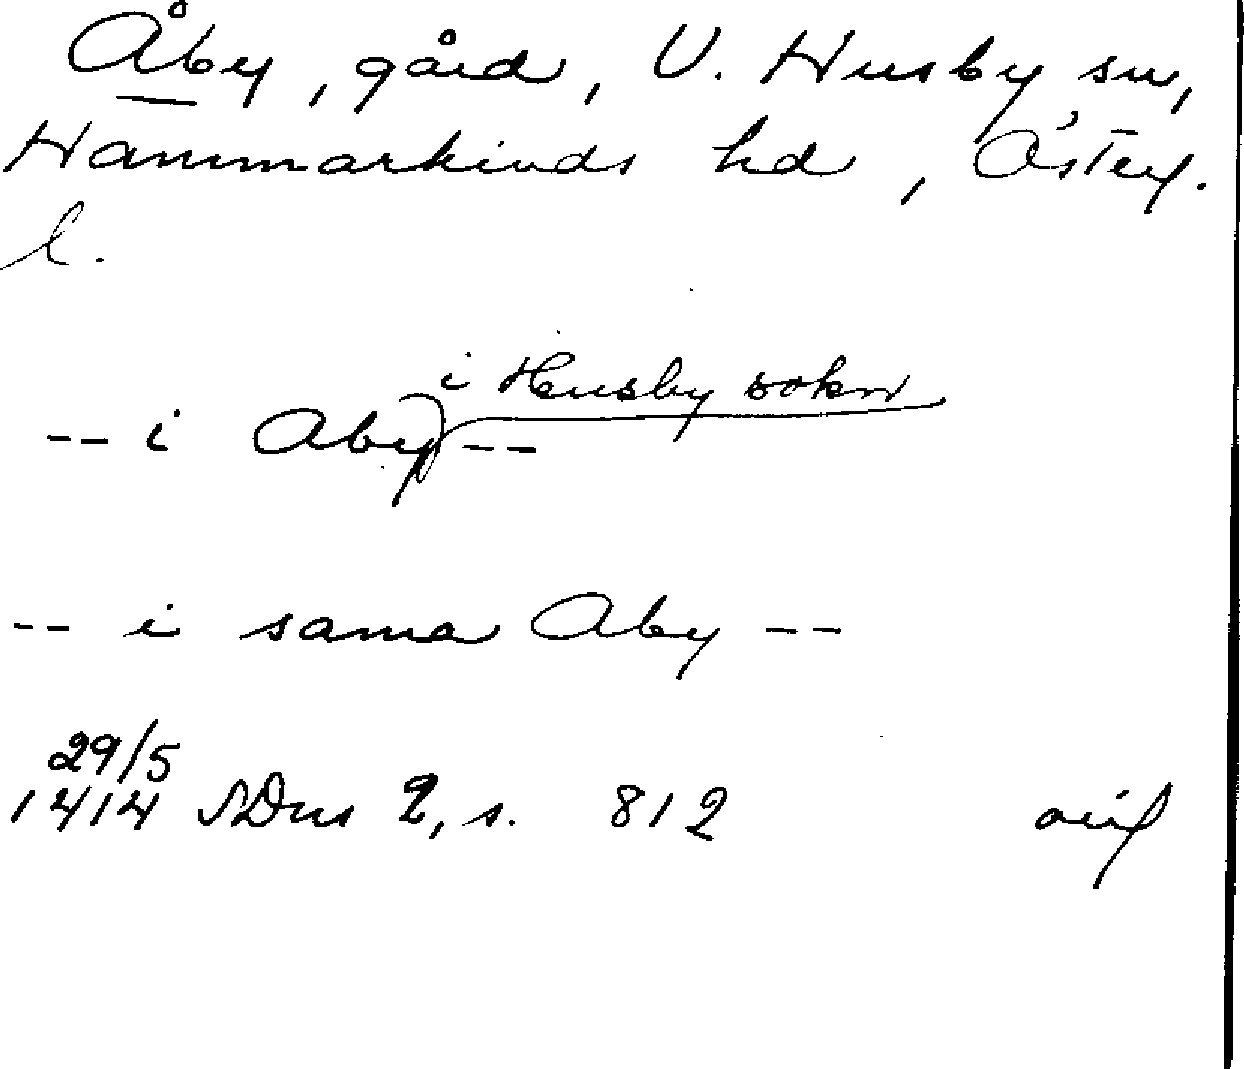 Åby, gård, V. Husby sn,
Hammarkinds hd, Österg.
l.
i Husby sokn
-- i Aby --
-- i sama Aby --
29/5
1414 SDns 2, s. 812